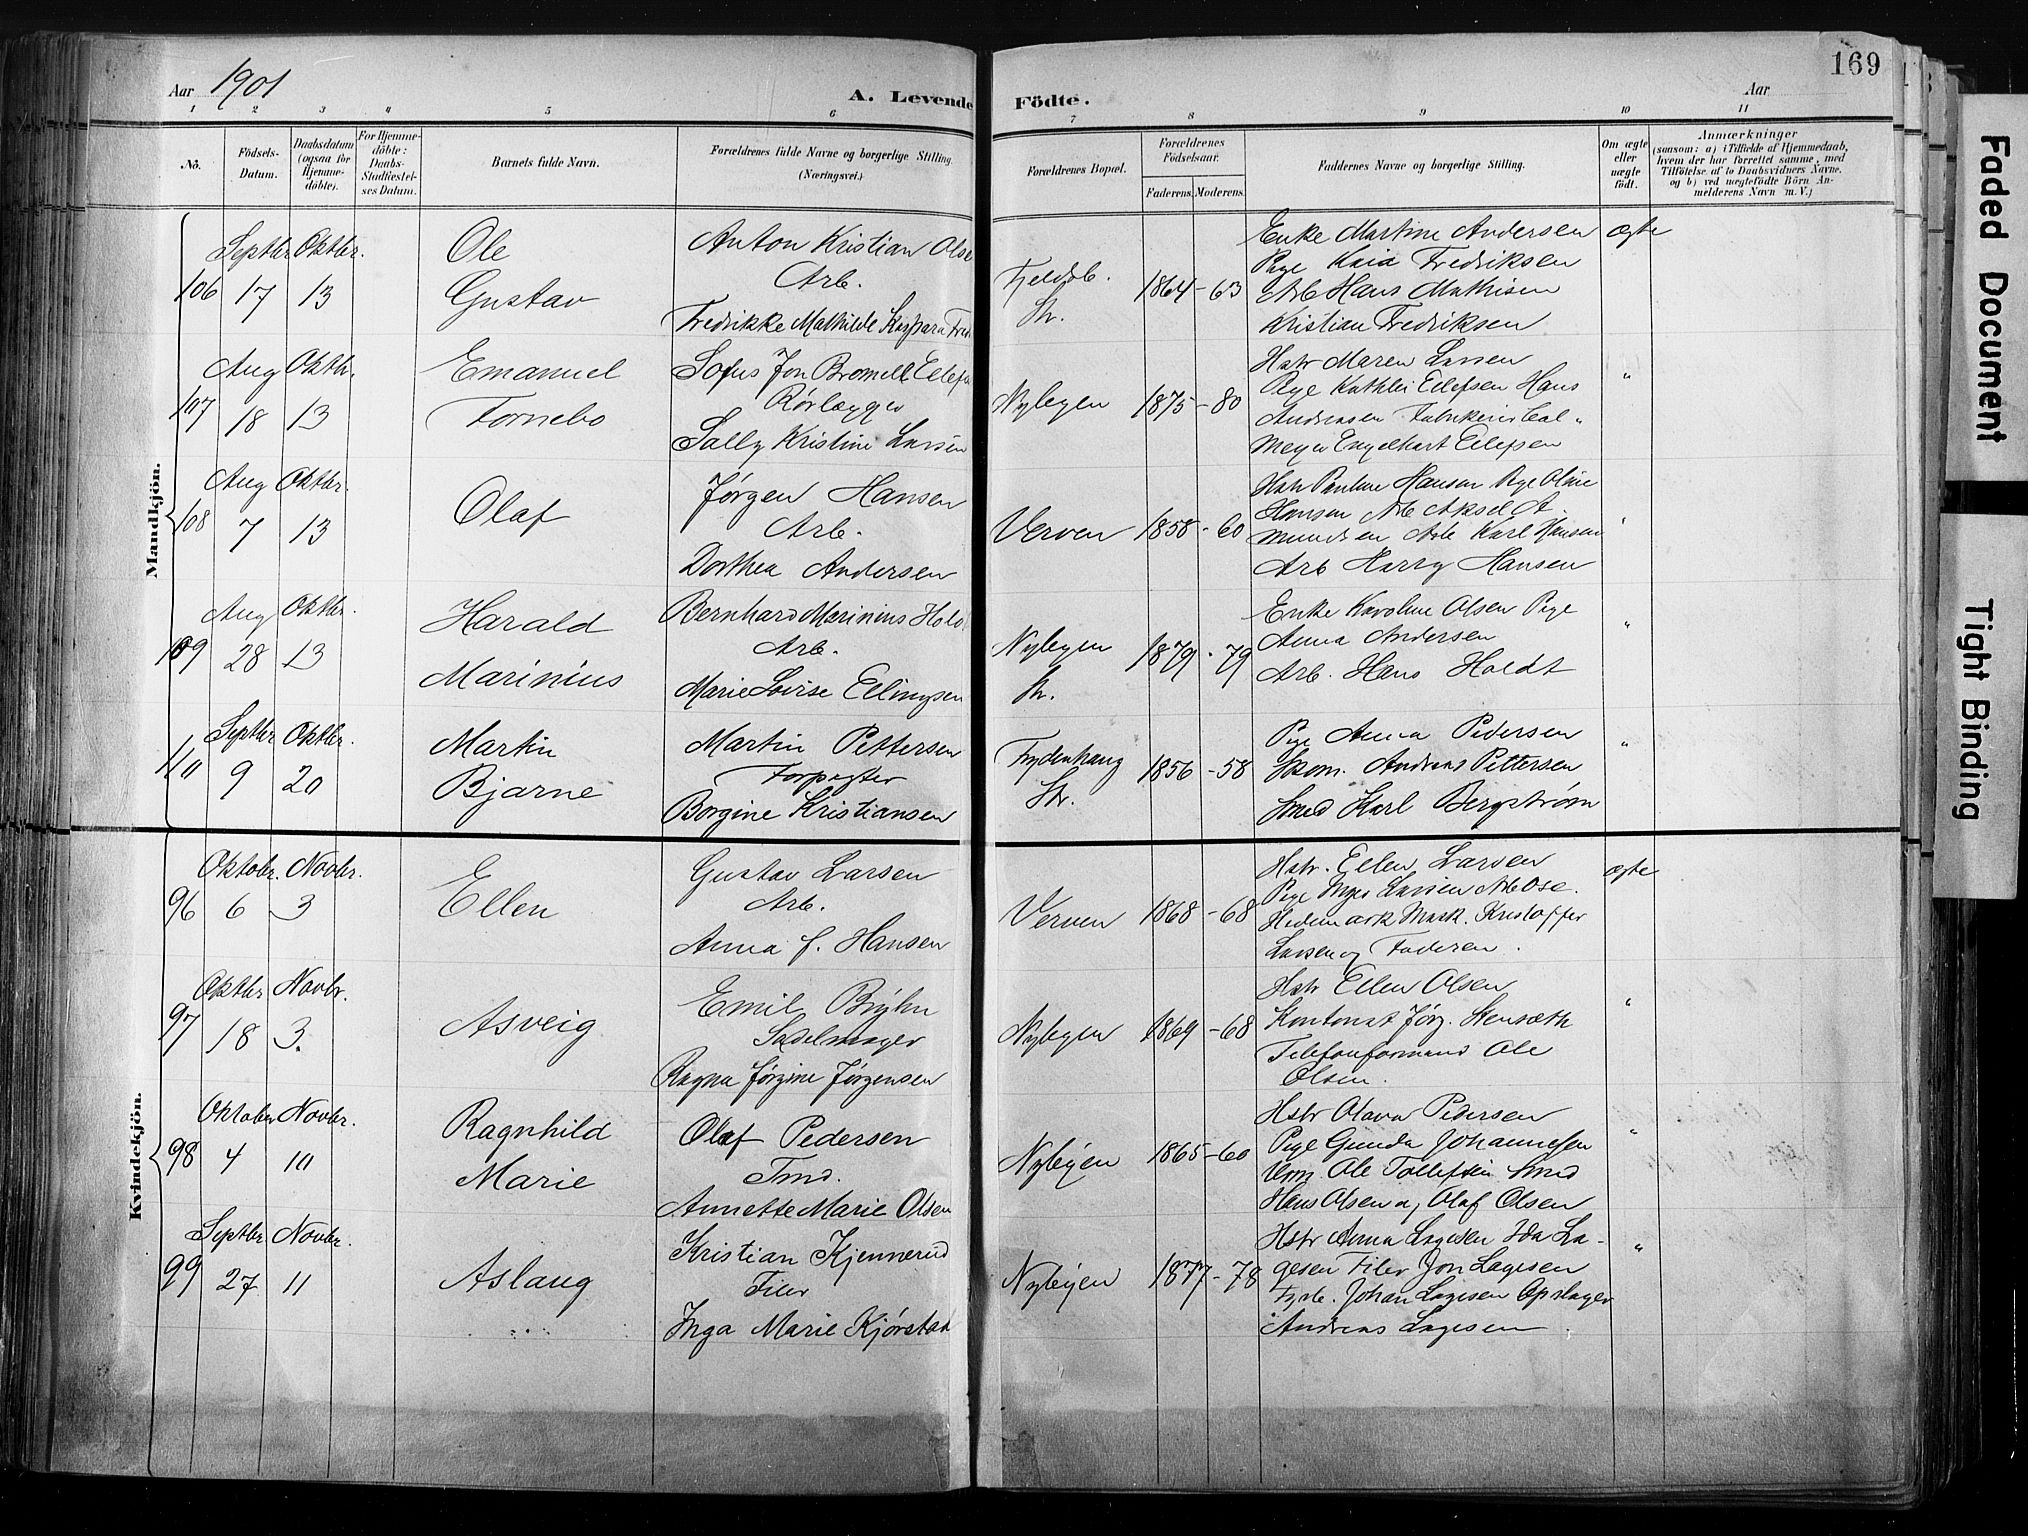 169
Aar 1901
A. Levende Födte.
Aar
1 2 3 4 5 6 7 8 9 10 11
No.
Födsels-Datum.
Daabsdatum (ogsaa for Hjemmedöbte).
For Hjemmedöbte: Daabs-Stadfæstelses Datum.
Barnets fulde Navn.
Forældrenes fulde Navne og borgerlige Stilling. (Næringsvei.)
Forældrenes Bopæl.
Forældrenes Födselsaar.
Faderens. Moderens.
Faddernes Navne og borgerlige Stilling.
Om ægte eller uægte födt.
Anmærkninger
(saasom: a) i Tilfælde af Hjemmedaab,
hvem der har forrettet samme, med
Tilföielse af to Daabsvidners Navne,
og b) ved uægtefödte Börn An-
melderens Navn m. V.)
Mandkjön.
106
Septbr 17
Oktbr. 13
Ole
Gustav
Anton Kristian Olse
Arb.
Fredrikke Mathilde Kaspara Fred
Fjeldsb.
Str.
1864 - 63
Enke Martine Andersen
Pige Kaia Fredriksen
Arb Hans Mathisen
Kristian Fredriksen
ægte
107
Aug 18
Oktbr. 13
Emanuel
Tornebo
Sofus Jon Eilefs
Rørlægger
Sally Kristine Larsen
Nylegen
1875 - 80
Hstr Maren Larsen
Pige Eilefsen Hans
Andreasen
Meyer Engelhart Eilefsen
"
108
Aug 7
Oktbr. 13
Olaf
Jørgen Hansen
Arb.
Dorthea Andersen
Verven
1858 - 60
Hstr Pauline Hansen Pige Oline
Hansen Arb Aksel A
mundsen Arb Karl Hansen
Arb Harry Hansen
"
109
Aug 28
Oktbr. 13
Harald
Marinius
Bernhard Marinius Hold
Arb.
Marie Lovise Ellingsen
Nylegen
Str.
1879 - 79
Enke Karoline Olsen Pige
Anna Andersen
Arb. Hans Holdt
"
110
Septbr 9
Oktbr. 20
Martin
Bjarne
Martin Pettersen
Forpagter
Borgine Kristiansen
Frydenhaug
Str.
1856 - 58
Pige Anna Pedersen
Skom. Andreas Pettersen
Smed Karl Bergstrøm
"
Kvindekjön.
96
Oktobr. 6
Novbr. 3
Ellen
Gustav Larsen
Arb.
Anna f. Hansen
Verven
1868 - 68
Hstr. Ellen Larsen
Pige Larsen Arb Ose.
Hedemark Mask. Kristoffer
Larsen og Faderen.
ægte
97
Oktbr 18
Novbr. 3.
Asveig
Emil Brýhn
Sadelmager
Ragna Jørgine Jørgensen
Nylegen
1869 - 68
Hstr Ellen Olsen
Kontorist Jørg. Stensæth
Telefonformand Ole
Olsen.
"
98
Oktober 4
Novbr. 10
Ragnhild
Marie
Olaf Pedersen
Tmd.
Annette Marie Olsen
Nyleyen
1865 - 60
Hstr Olava Pedersen
Pige Gunda Johannesen
Ole Tollefsen Smed
Hans Olsen og Olaf Olsen
"
99
Septbr 27
Novbr. 11
Aslaug
Kristian Kjennerud
Filer
Inga Marie Kjørstad
Nyleyen
1877 - 78
Hstr Anna Lagesen Ida La-
gesen Filer Jon Lagesen
Fyrb. Johan Lagesen Opslager
Andreas Lagesen
"
Faded Document
Tight Binding